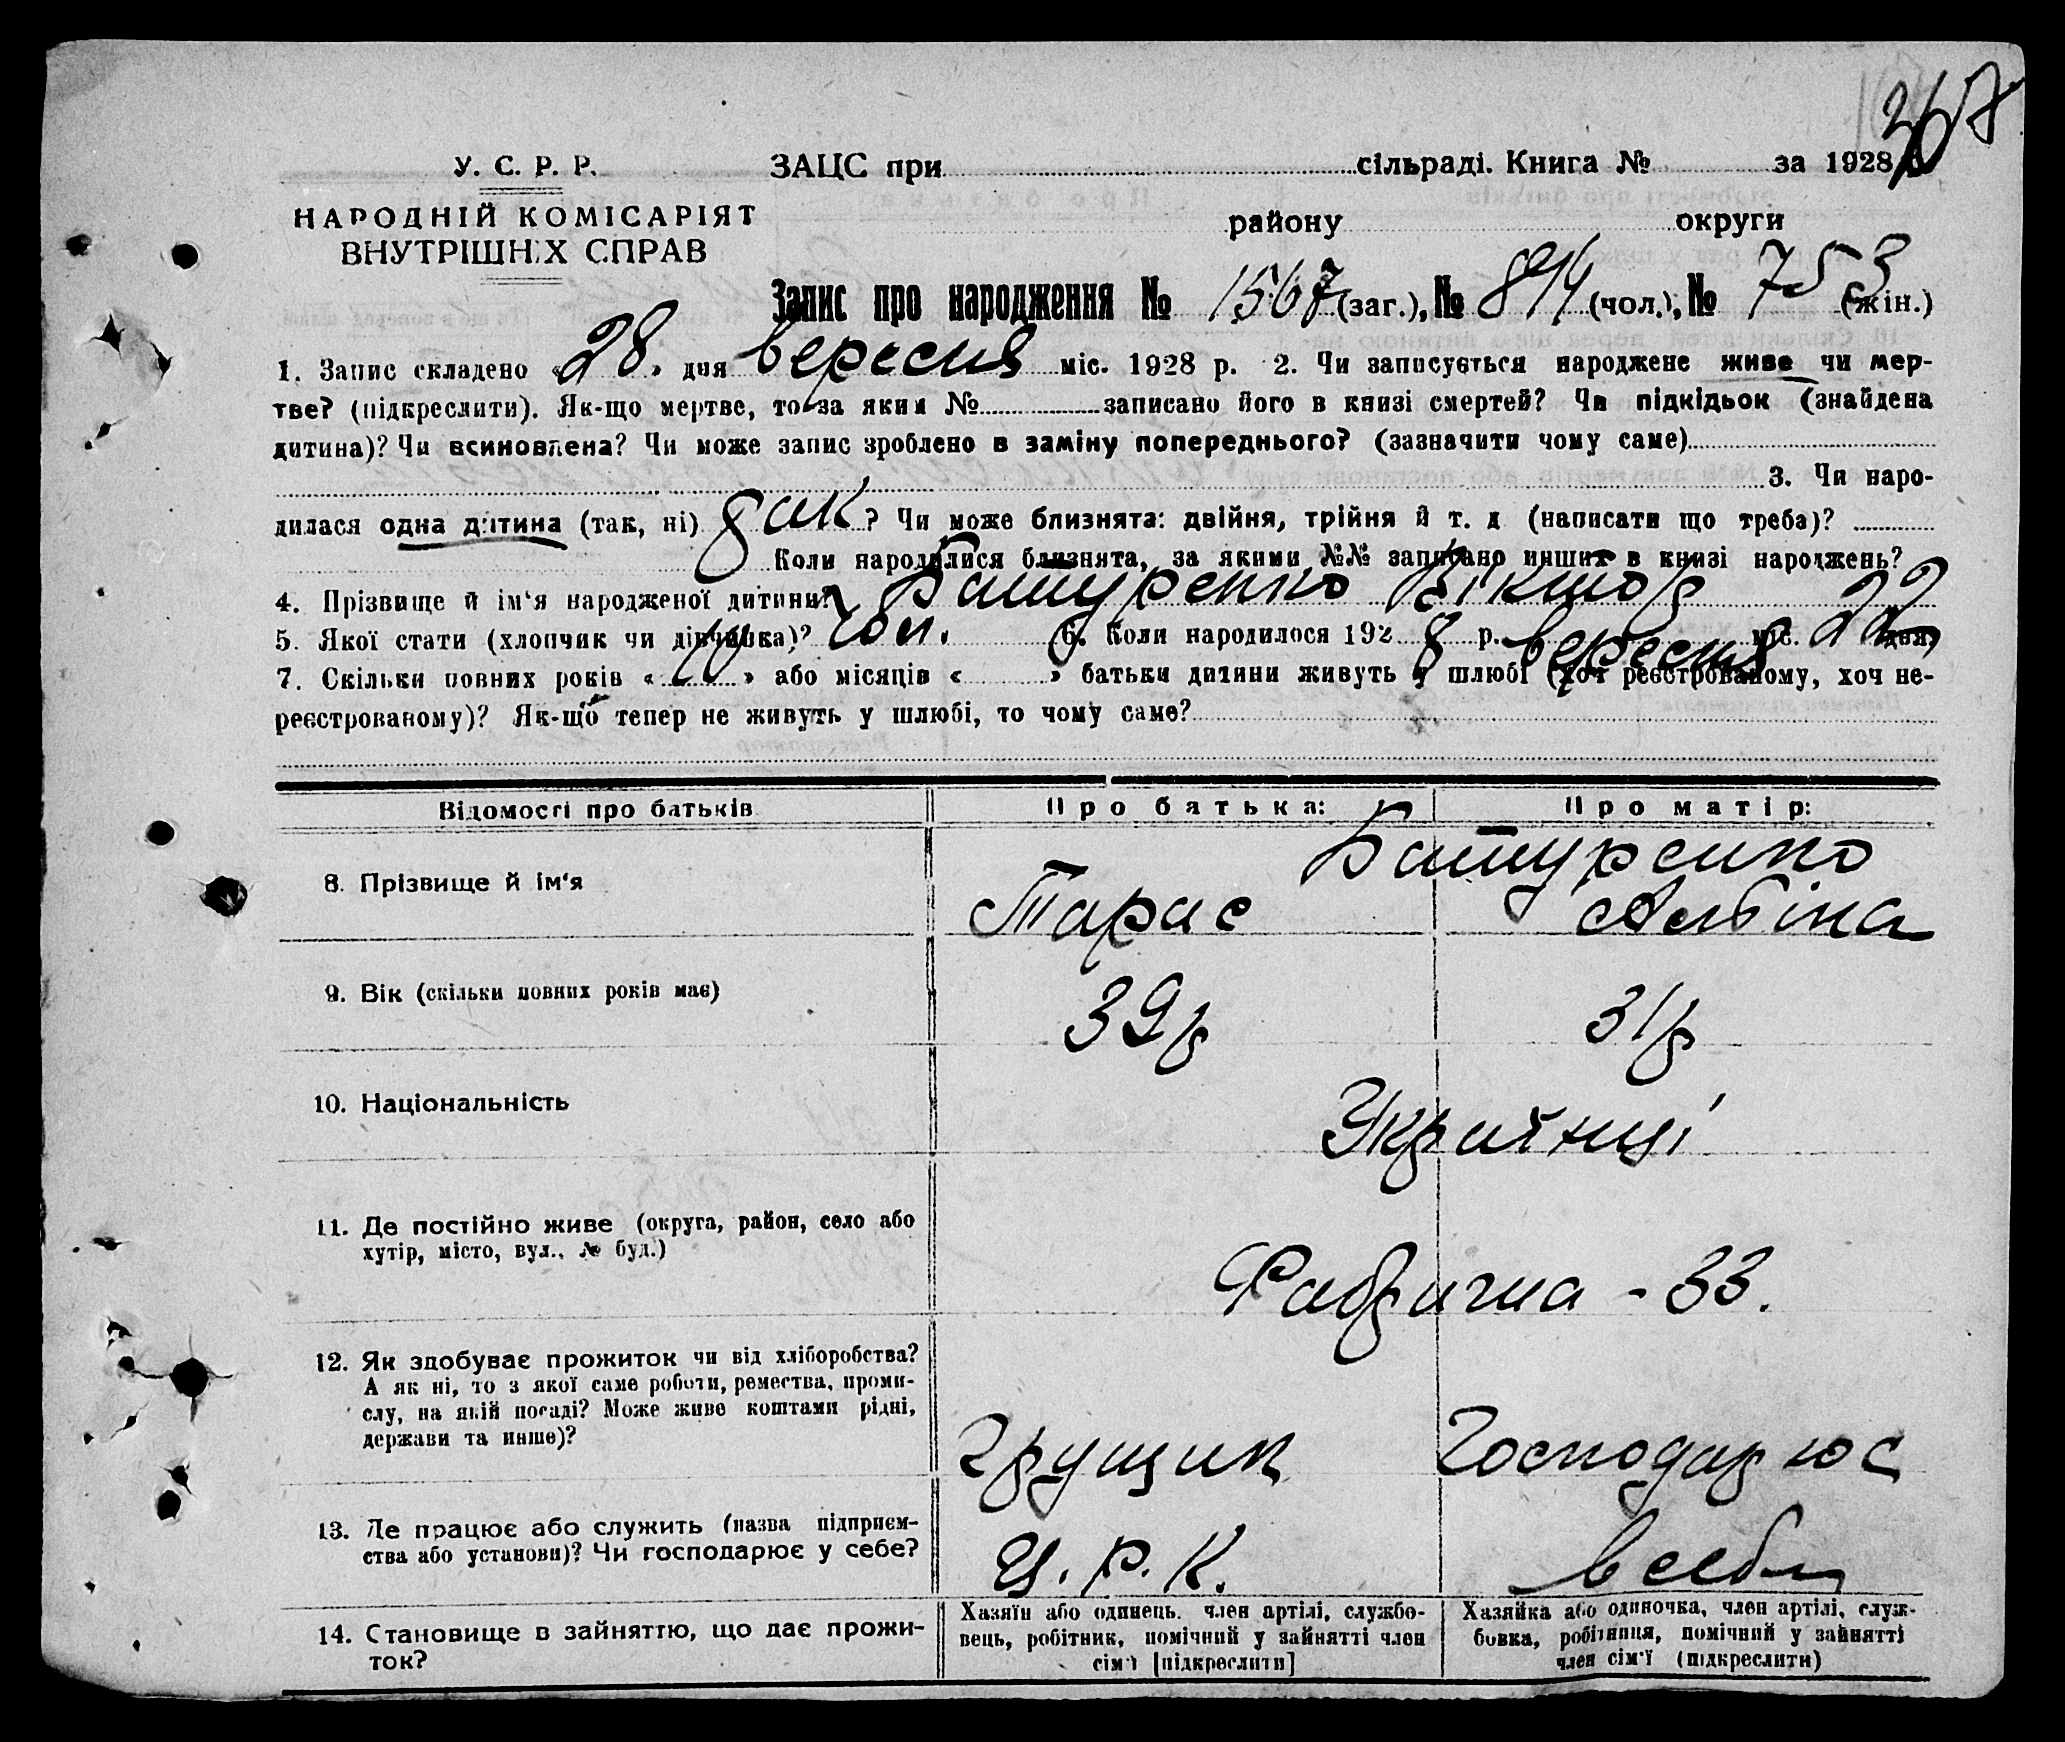 367
У. С. Р. Р. ЗАЦС при сільраді. Книга № за 1928
НАРОДНІЙ КОМІСАРІЯТ
ВНУТРІШНІХ СПРАВ
району округи
Запис про народження № 1567 (заг.), № 814 (чол.), № 753 (жін.)
1. Запис складено «28» дня вересня міс. 1928 р. 2. Чи записується народжене живе чи мер-
тве? (підкреслити). Як-що мертве, то за яким № записано його в книзі смертей? Чи підкідьок (знайдена
дитина)? Чи всиновлена? Чи може запис зроблено в заміну попереднього? (зазначити чому саме)
3. Чи наро-
дилася одна дитина (так, ні) так? Чи може близнята: двійня, трійня й т. д (написати що треба)?
Коли народилися близнята, за якими №№ записано инших в книзі народжень?
4. Прізвище й ім‘я народженої дитини? Батуренко Віктор
5. Якої стати (хлопчик чи дівчинка)? чол. 6. Коли народилося 1928 р. вересня міс. 22 дня
7. Скільки повних років « » або місяців « » батьки дитини живуть у шлюбі (хоч реєстрованому, хоч не-
реєстрованому)? Як-що тепер не живуть у шлюбі, то чому саме?
Відомості про батьків Про батька: Про матір:
Батуренко
8. Прізвище й ім‘я Тарас Альбіна
9. Вік (скільки повних років має) 39р 31р
10. Національність Українці
11. Де постійно живе (округа, район, село або
хутір, місто, вул., № буд.)
Фабрична - 33.
12. Як здобуває прожиток чи від хліборобства?
А як ні, то з якої саме роботи, ремества, проми-
слу, на якій посаді? Може живе коштами рідні,
держави та инше)?
Грущик Господарює
13. Де працює або служить (назва підприєм-
ства або установи)? Чи господарює у себе?
Ц. Р. К. в себе
14. Становище в зайняттю, що дає прожи-
ток?
Хазяїн або одинець, член артілі, службо-
вець, робітник, помічний у зайнятті член
сім‘ї [підкреслити]
Хазяйка або одиночка, член артілі, служ-
бовка, робітниця, помічний у зайнятті
член сім‘ї (підкреслити)